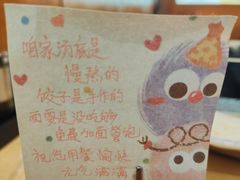 咱家汤底是
慢熬的
饺子是手作的
面要是没吃够
免费加面管饱
祝您用餐愉快
元气满满